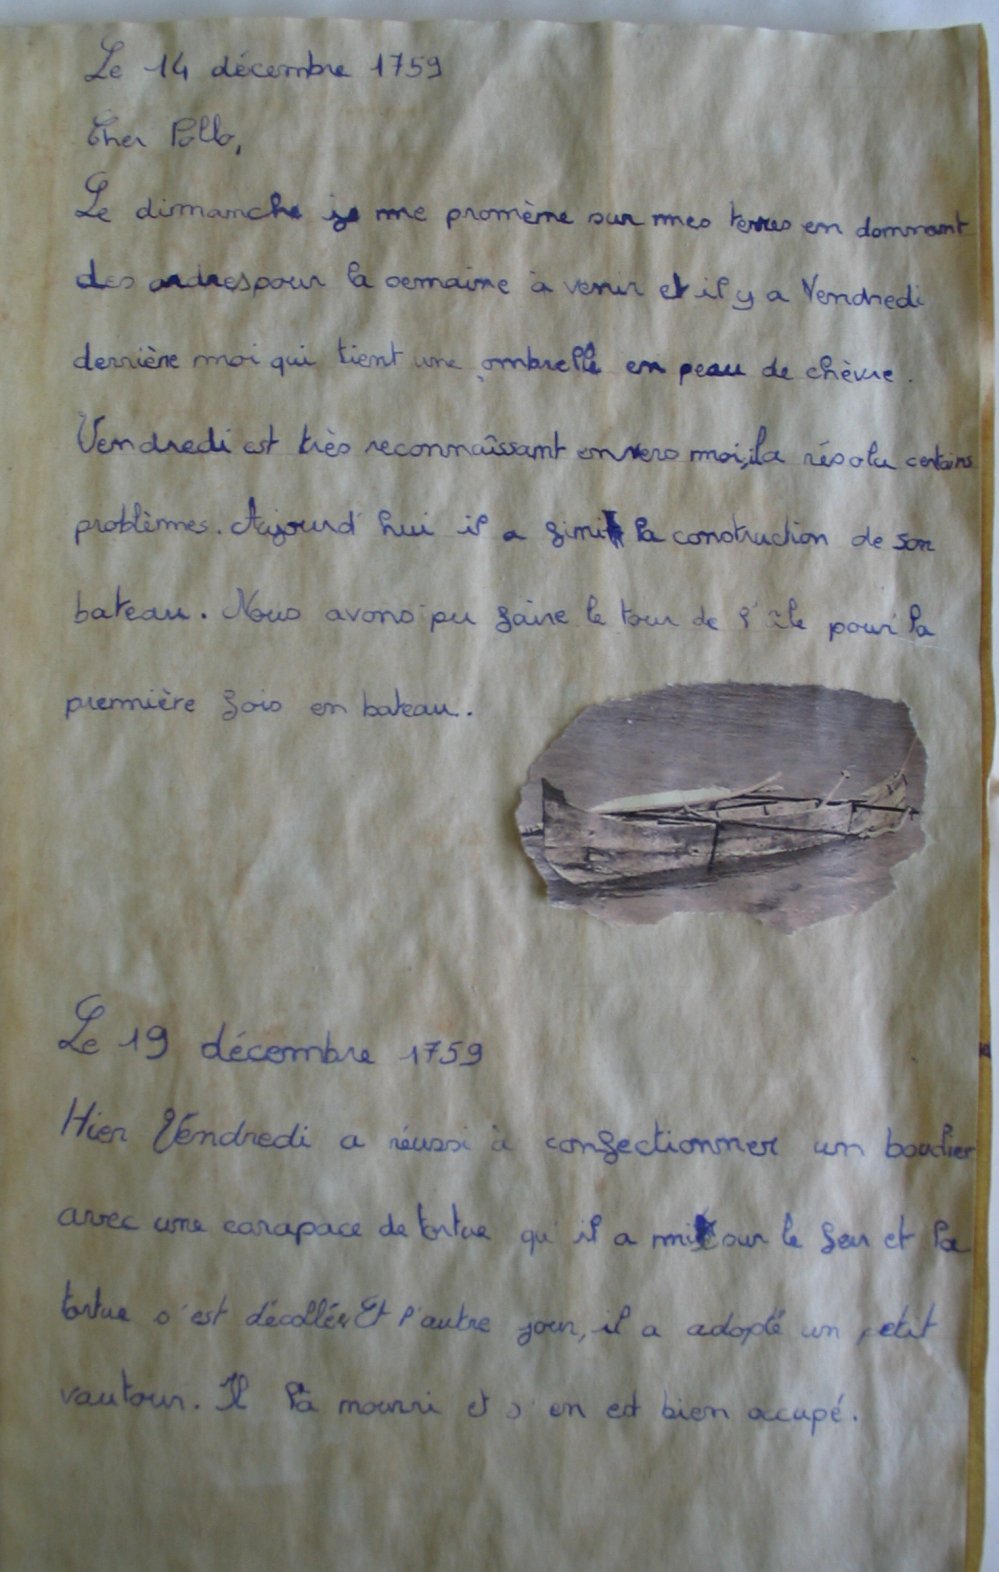 Le 14 décembre 1759
Cher Pollo,
Le dimanche je me promène sur mes terres en donnant
des ordres pour la semaine à venir et il y a Vendredi
derrière moi qui tient une ombrelle en peau de chèvre.
Vendredi est très reconnaîssant envers moi, il a résolu certains
problèmes. Aujourd'hui il a fini la construction de son
bateau. Nous avons pu faire le tour de l'île pour la
première fois en bateau.
Le 19 décembre 1759
Hier Vendredi a réussi à confectionner un bouclier
avec une carapace de tortue qu'il a mit sur le feu et la
tortue s'est décollée. Et l'autre jour, il a adopté un petit
vautour. Il l'a nourri et s'en est bien occupé.